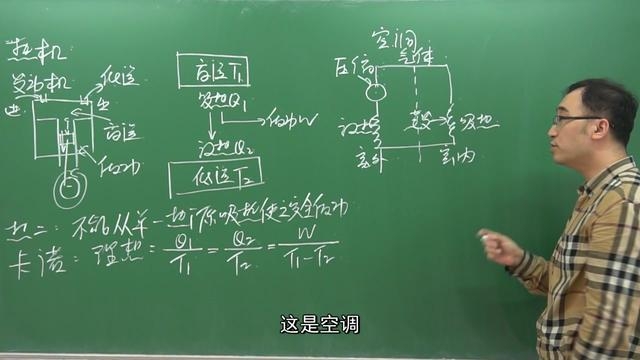 热机
发动机
低温
进
出
高温
做功
高温T₁
吸热Q₁
做功W
放热Q₂
低温T₂
空调
气体
压缩
放热
吸热
室外
室内
热二：不能从单一热源吸热使之完全做功
卡诺：理想：Q₁/T₁ = Q₂/T₂ = W/(T₁-T₂)
这是空调